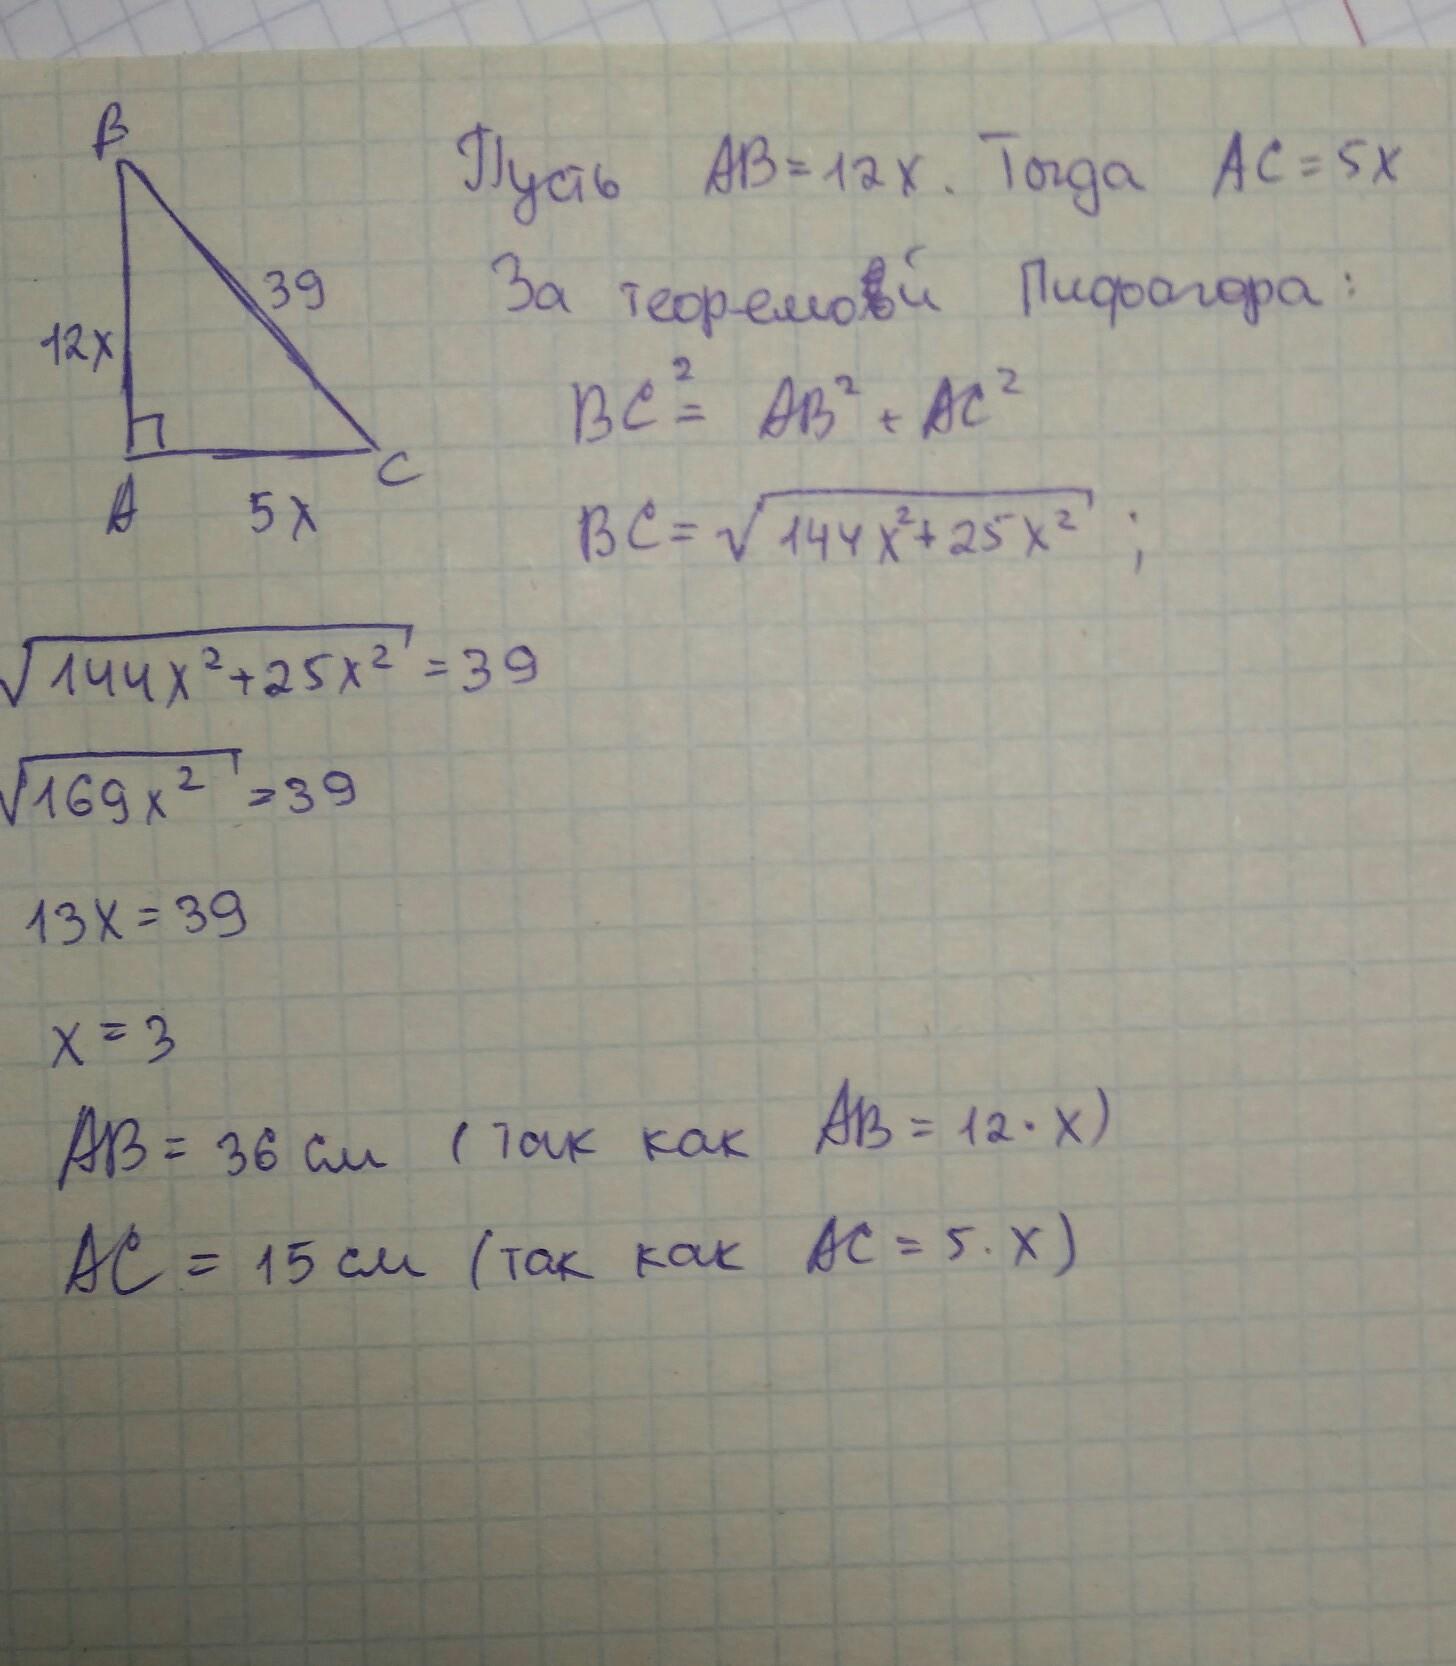 B
39
12x
A
C
5x
Пусть AB=12x. Тогда AC=5x
За теоремой Пифагора:
BC²= AB² + AC²
BC=√144x²+25x² ;
√144x²+25x² =39
√169x² =39
13x=39
x=3
AB=36 см (так как AB=12·x)
AC=15 см (так как AC=5·x)